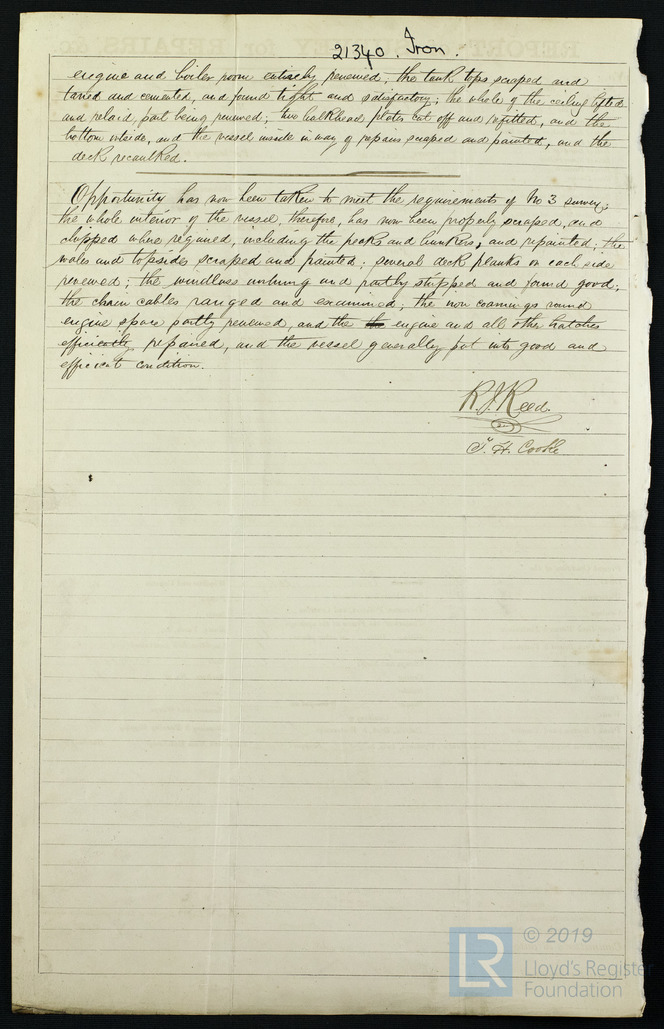 21340. Iron.
engine and boiler room entirely renewed; the tank tops scraped and
tarred and cemented, and found tight and satisfactory; the whole of the ceiling lifted
and relaid, part being renewed; two bulkhead plates cut off and refitted, and the
bottom outside, and the vessel inside in way of repairs scraped and painted, and the
deck recaulked.
Opportunity has now been taken to meet the requirements of No 3 survey;
the whole interior of the vessel, therefore, has now been properly scraped, and
chipped where required, including the peaks and bunkers, and repainted; the
wales and topsides scraped and painted; several deck planks on each side
renewed; the windlass unhung and partly stripped and found good;
the chain cables ranged and examined; the iron coamings round
engine space partly renewed, and the engine and all other hatches
efficiently repaired, and the vessel generally put into good and
efficient condition.
R. J. Reed
T. H. Cooke
© 2019
LR
Lloyd's Register
Foundation